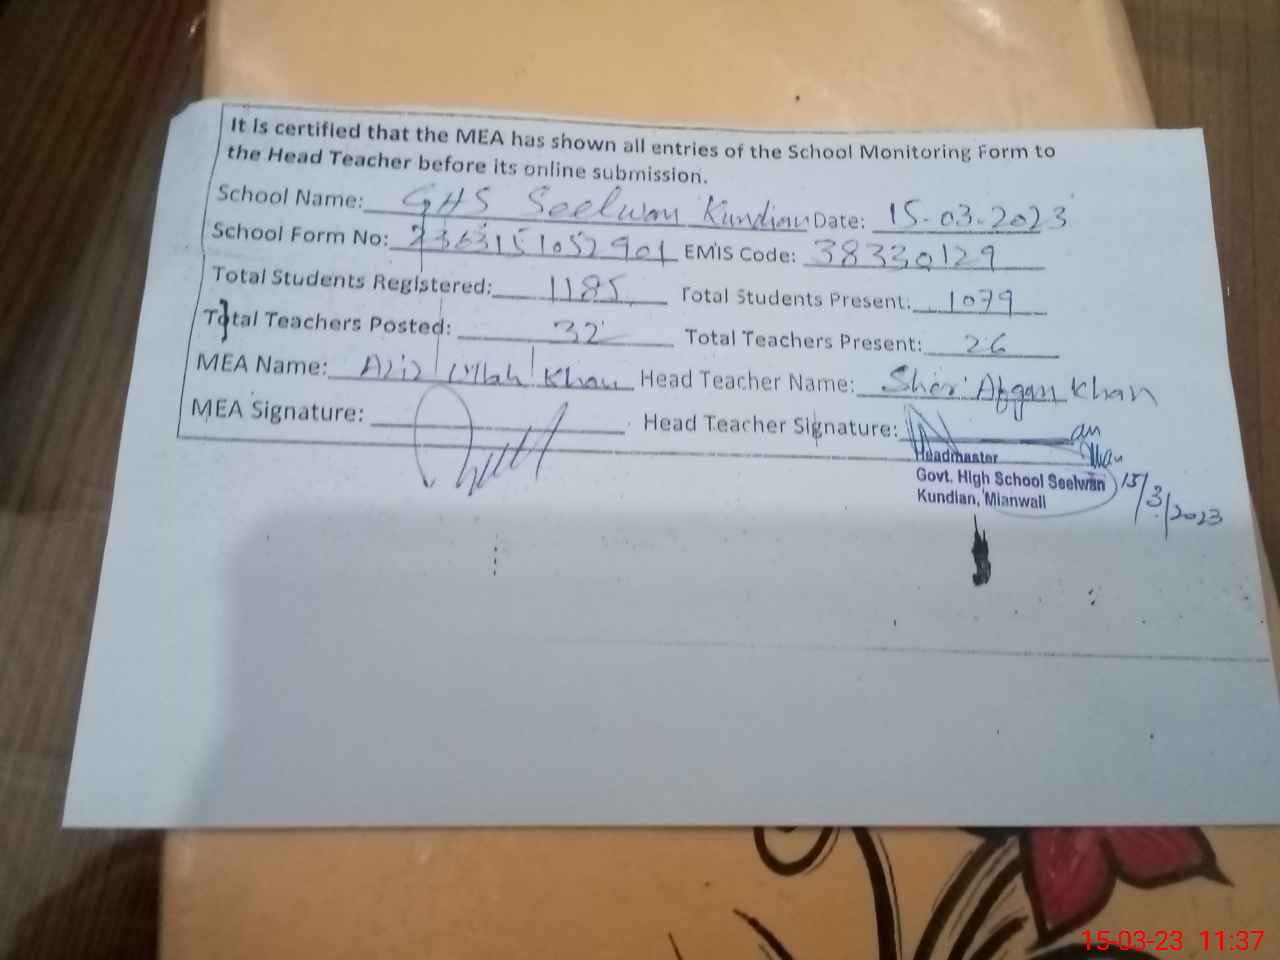 It is certified that the MEA has shown all entries of the School Monitoring Form to
the Head Teacher before its online submission.
School Name: GHS Seelwan Kundian Date: 15-03-2023
School Form No: EMIS Code: 38330129
Total Students Registered: 1185 Total Students Present: 1079
Total Teachers Posted: 32 Total Teachers Present: 26
MEA Name: Aziz Ullah Khan Head Teacher Name: Sher Afgan Khan
MEA Signature: Head Teacher Signature:
Headmaster
Govt. High School Seelwan
Kundian, Mianwali
15/3/2023
15-03-23 11:37